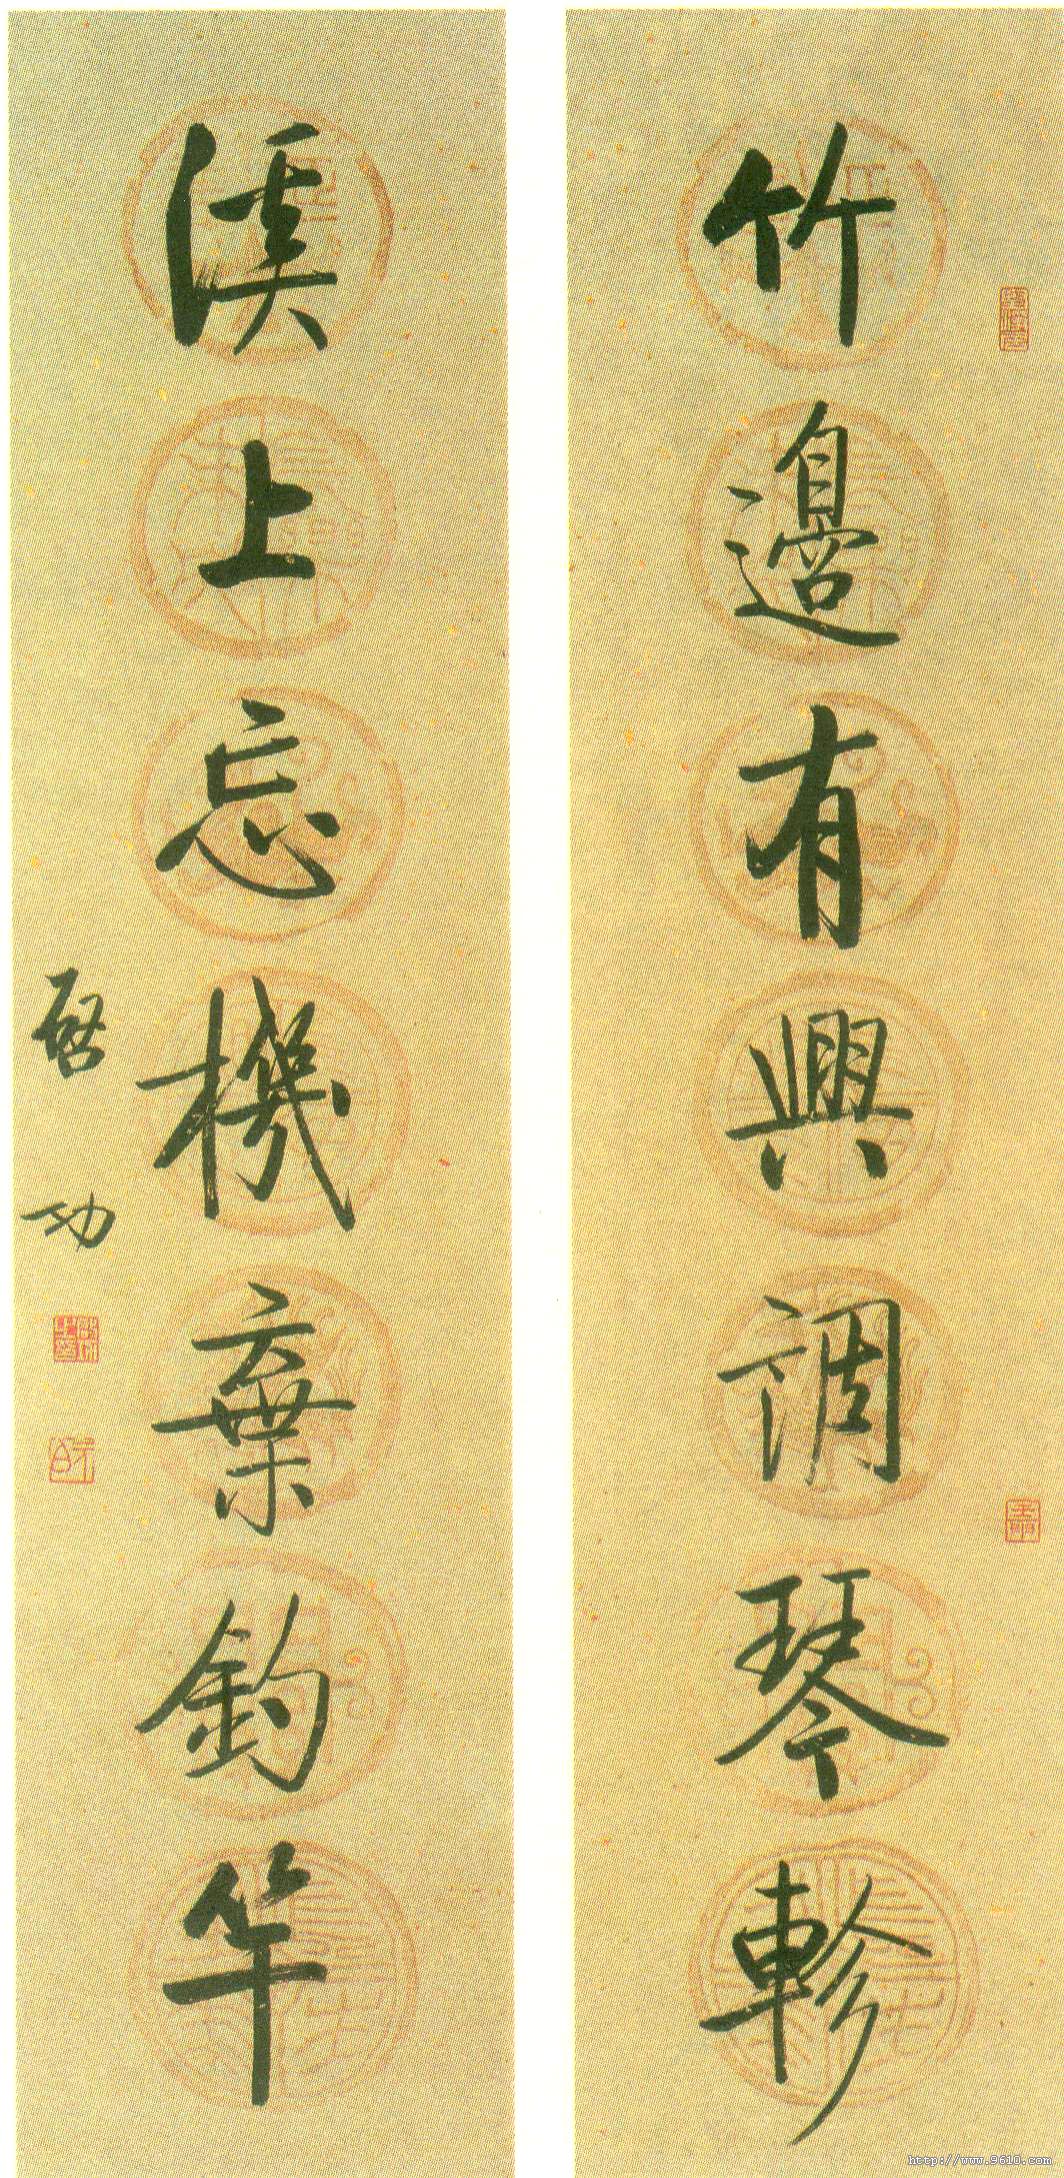 竹邊有興調琴軫
溪上忘機棄釣竿
啓功
http://www.9610.com